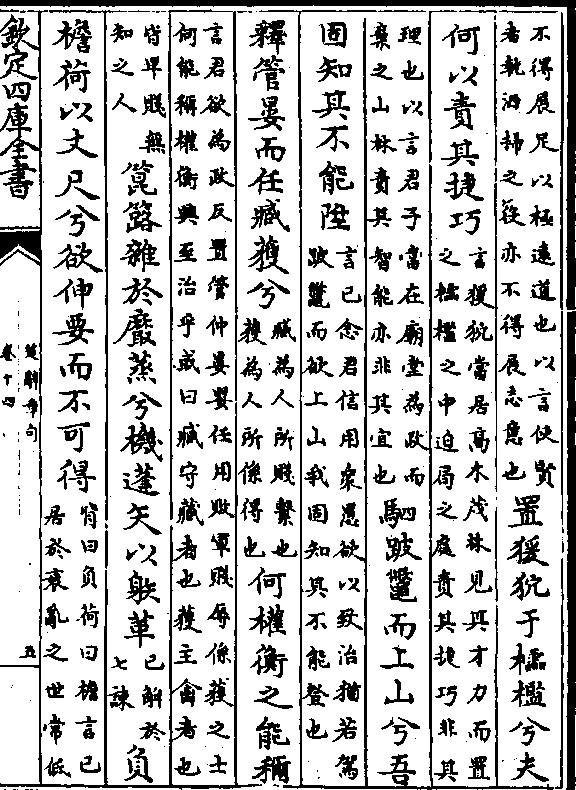 不得展足以極遠道也以言使賢
者執洒掃之役亦不得展志意也
置猨狖于櫺檻兮夫
何以責其捷巧
言猨狖當居高木茂林見其才力而置
之櫺檻之中迫局之處責其捷巧非其
理也以言君子當在廟堂為政而
棄之山林責其智能亦非其宜也
駟跛鼈而上山兮吾
固知其不能陞
言己念君信用衆愚欲以致治猶若駕
跛鼈而欲上山我固知其不能登也
釋管晏而任臧獲兮
臧為人所賤繫也
獲為人所係得也
何權衡之能稱
言君欲為政反置管仲晏嬰任用敗軍賤辱係獲之士
何能稱權衡興至治乎或曰臧守藏者也獲主禽者也
皆卑賤無
知之人
箟簬雜於黀蒸兮機蓬矢以䠶革
已解於
七諫
負
檐荷以丈尺兮欲伸要而不可得
背曰負荷曰檐言已
居於衰亂之世常低
欽定四庫全書
楚辭章句
卷十四
五